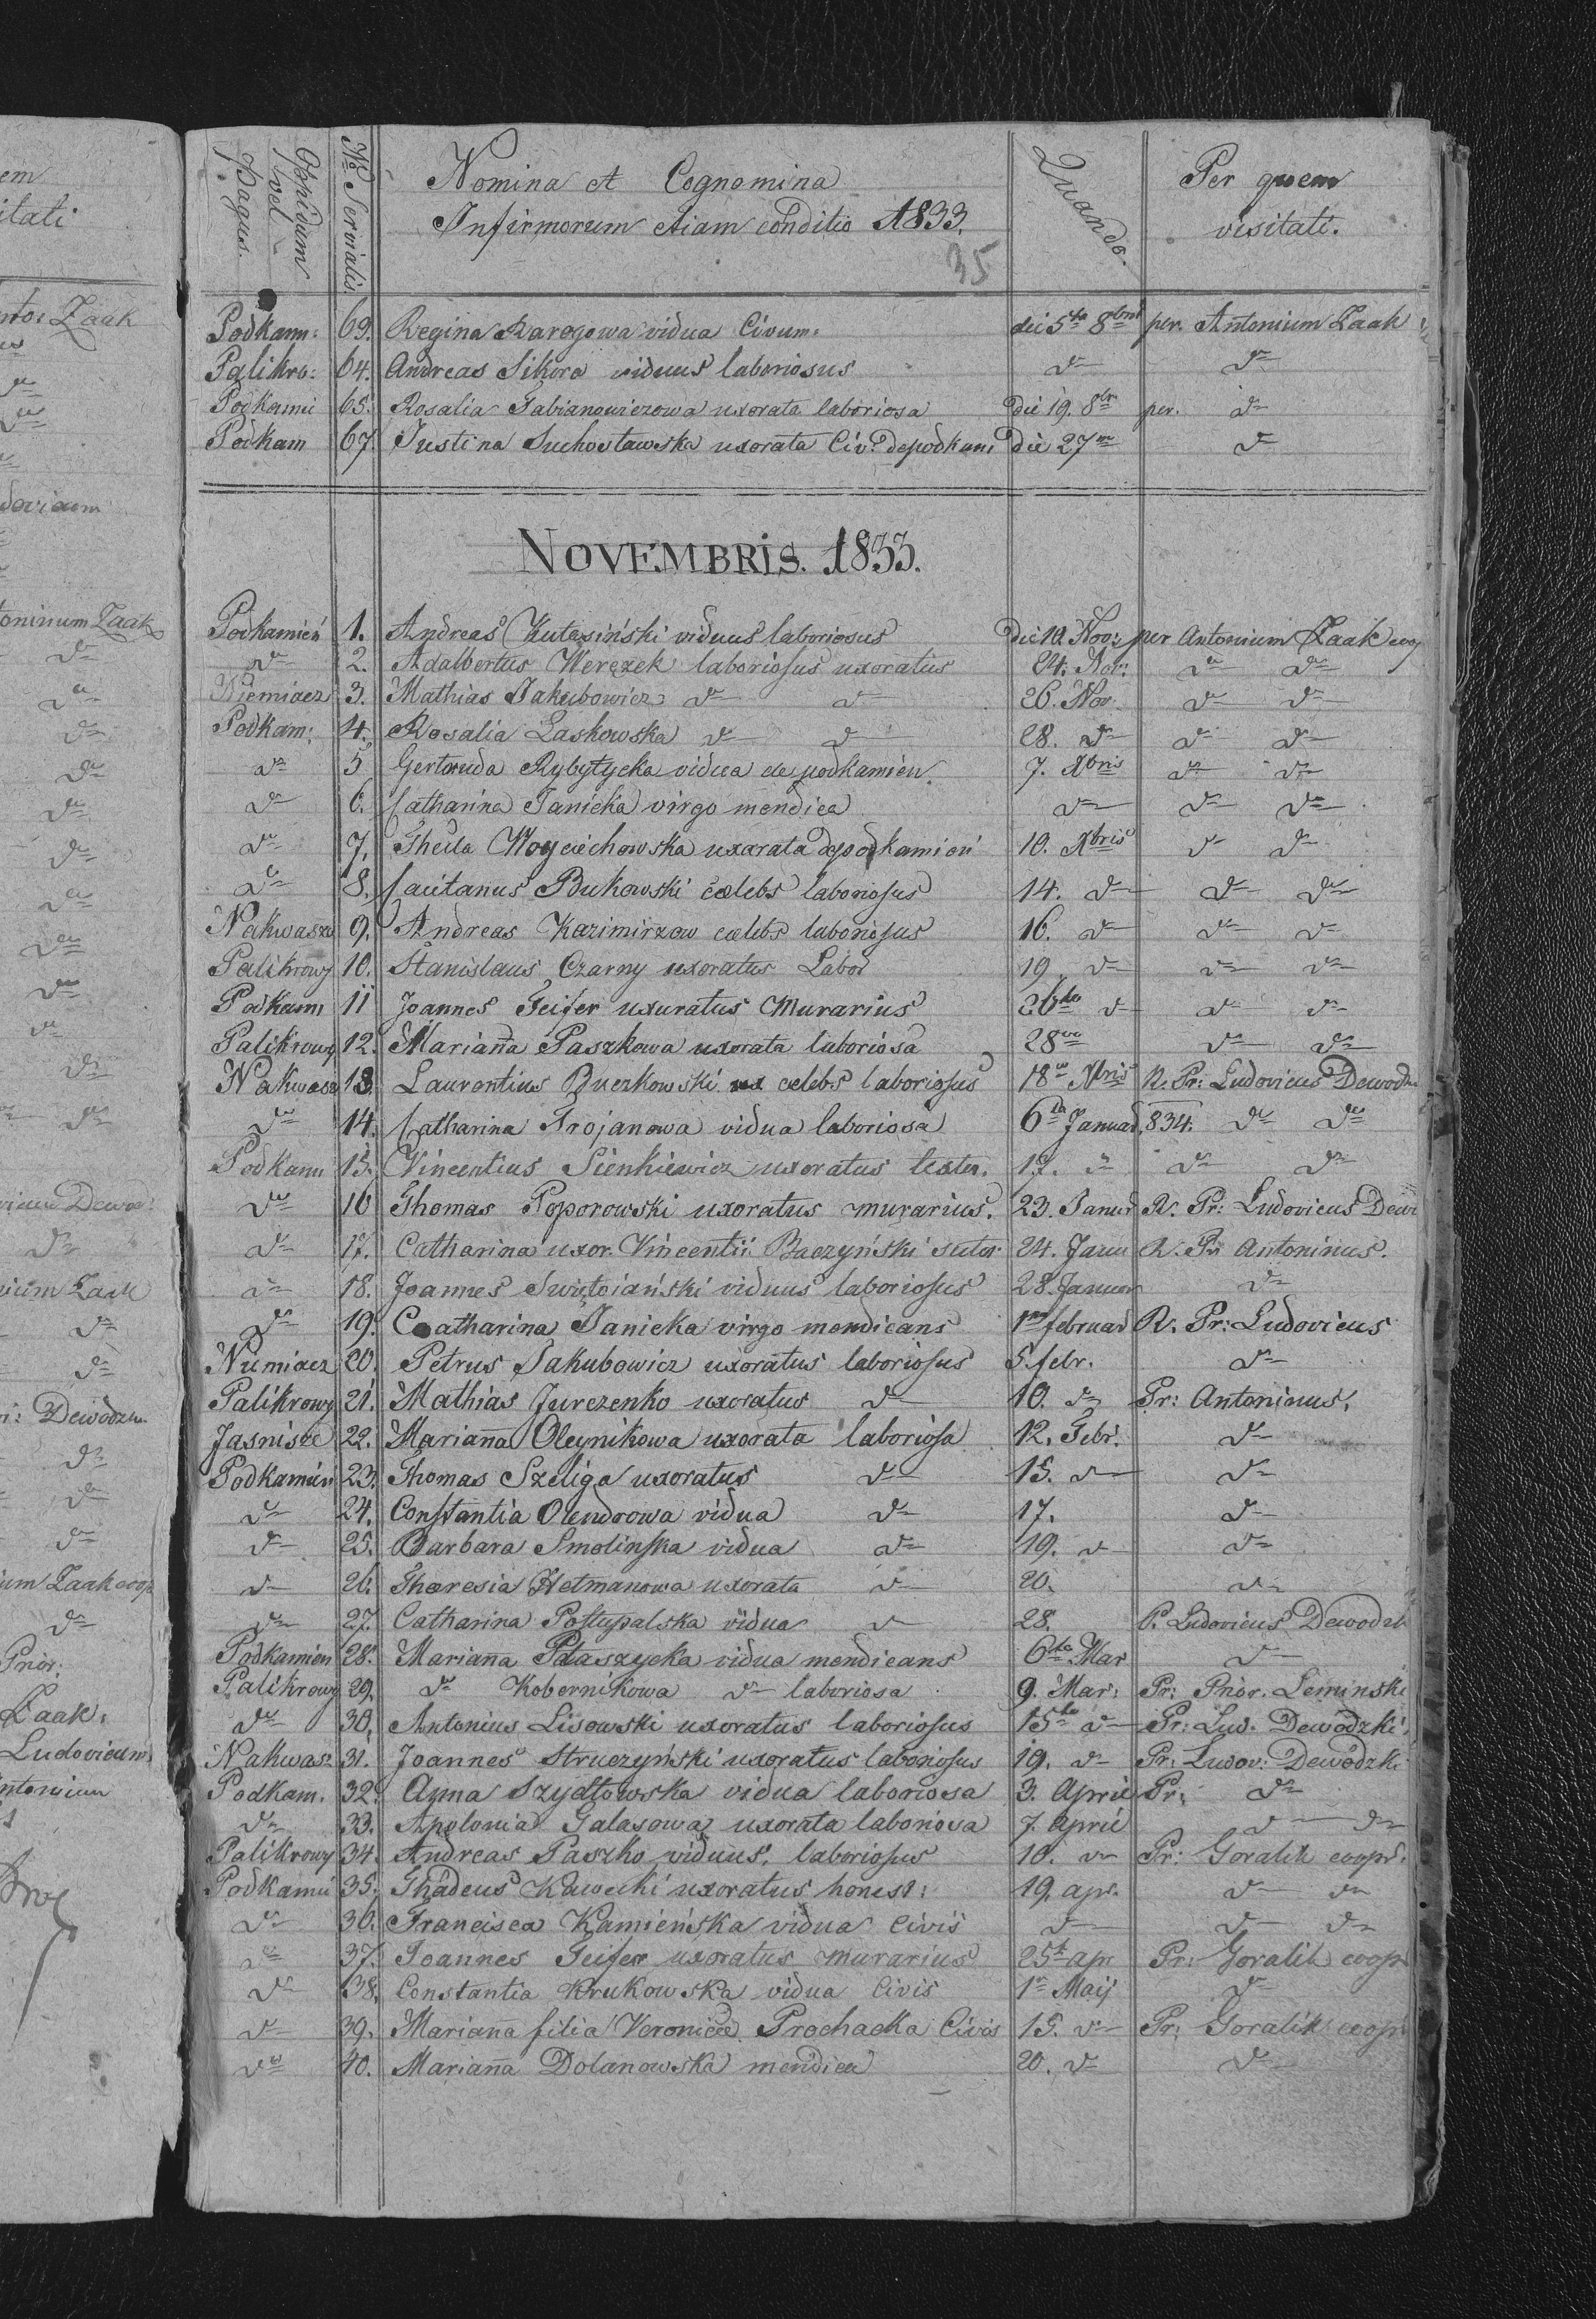 Oppidum vel Pagus.
No Servialis.
Nomina et Cognomina
Infirmorum etiam conditio 1833.
35
Quando.
Per quem
visitati.
Podkam: 69. Regina Rarogowa vidua Civum. die 5ta 8bris per. Antonium Zaak
Palikro: 64. Andreas Sikora viduus laboriosus do do
Podkami 65. Rosalia Fabianowiczowa uxorata laboriosa die 19. 8br. per. do
Podkam 67. Justina Suchosławska uxorata Civ. depodkam die 27m do
NOVEMBRIS. 1833.
Podkamień 1. Andreas Kutasiński viduus laboriosus die 10. Nov: per Antonium Zaak coop
do 2. Adalbertus Weręzek laboriosus uxoratus 24. Nov: do do
Niemiacz 3. Mathias Jakubowicz do do 26. Nov. do do
Podkam: 4. Rosalia Laskowska do do 28. do do do
do 5 Gertruda Rybytycka vidua de podkamien. 7. Xbris do do
do 6. Catharina Janicka virgo mendica do do do
do 7. Thecla Woyciechowska uxorata depodkamień 10. Xbris do do
do 8. Caietanus Bukowski cælebs laboriosus 14. do do do
Nakwasza 9. Andreas Kazimirzow cælebs laboriosus 16. do do do
Palikrowy 10. Stanislaus Czarny uxoratus Labor 19. do do do
Podkam 11 Joannes Feifer uxuratus Murarius 26to do do do
Palikrowy 12. Marianna Paszkowa uxorata laboriosa 28vo do do
Nakwasz 13. Laurentius Buczkowski ux celebs laboriosus 18 Xbris R. Pr: Ludovicus Dewodz
do 14. Catharina Trojanowa vidua laboriosa 6ta Januar. 834. do do
Podkam 15. Vincentius Sienkiewicz uxoratus textor. 17. do do do
do 16 Thomas Poporowski uxoratus murarius. 23. Januar R. Pr: Ludovicus Dewi
do 17. Catharina uxor. Vincentii Baczyński sutor 24. Janu R. Pr Antoninus.
do 18. Joannes Swiętoiański viduus laboriosus 28. Januar do
do 19. Catharina Janicka virgo mendicans 1ma februar R. Pr: Ludovicus
Niemiacz 20. Petrus Jakubowicz uxoratus laboriosus 5. febr. do
Palikrowy 21. Mathias Jurczenko uxoratus do 10. do Pr: Antoninus.
Jasnisce 22. Marianna Oleynikowa uxorata laboriosa 12. Febr. do
Podkamień 23. Thomas Szeliga uxoratus do 15. do do
do 24. Constantia Olendrowa vidua do 17. do
do 25. Barbara Smolinska vidua do 19. do do
do 26. Theresia Hetmanowa uxorata do 20. do
do 27. Catharina Postupalska vidua do 28. P. Ludovicus Dewodzk
Podkamien 28. Mariana Ptaszycka vidua mendicans 6ta Mar do
Palikrowy 29. do Kobernikowa do laboriosa 9. Mar: Pr: Prior. Leminski
do 30. Antonius Lisowski uxoratus laboriosus 15ta do Pr: Lud. Dewodzki.
Nakwas: 31. Joannes Struczyński uxoratus laboriosus 19. do Pr: Ludov: Dewodzki
Podkam. 32. Anna Szydłowska vidua laboriosa 3. April Pr: do
do 33. Apolonia Galasowa uxorata laboriosa 7. april do do
Palikrowy 34. Andreas Paszko viduus. laboriosus 10. do Pr: Goralik coopr.
Podkamie 35. Thadeus Kawecki uxoratus honest: 19. apr. do do
do 36. Francisca Kamieńska vidua Civis do do do
do 37. Joannes Feifer uxoratus murarius 25ta apr Pr: Goralik coop
do 38. Constantia Krukowska vidua Civis 1a Maij do
do 39. Marianna filia Veronicæ Prochacka Civis 15. do Pr: Goralik coop
do 40. Marianna Dolanowska mendica 20. do do